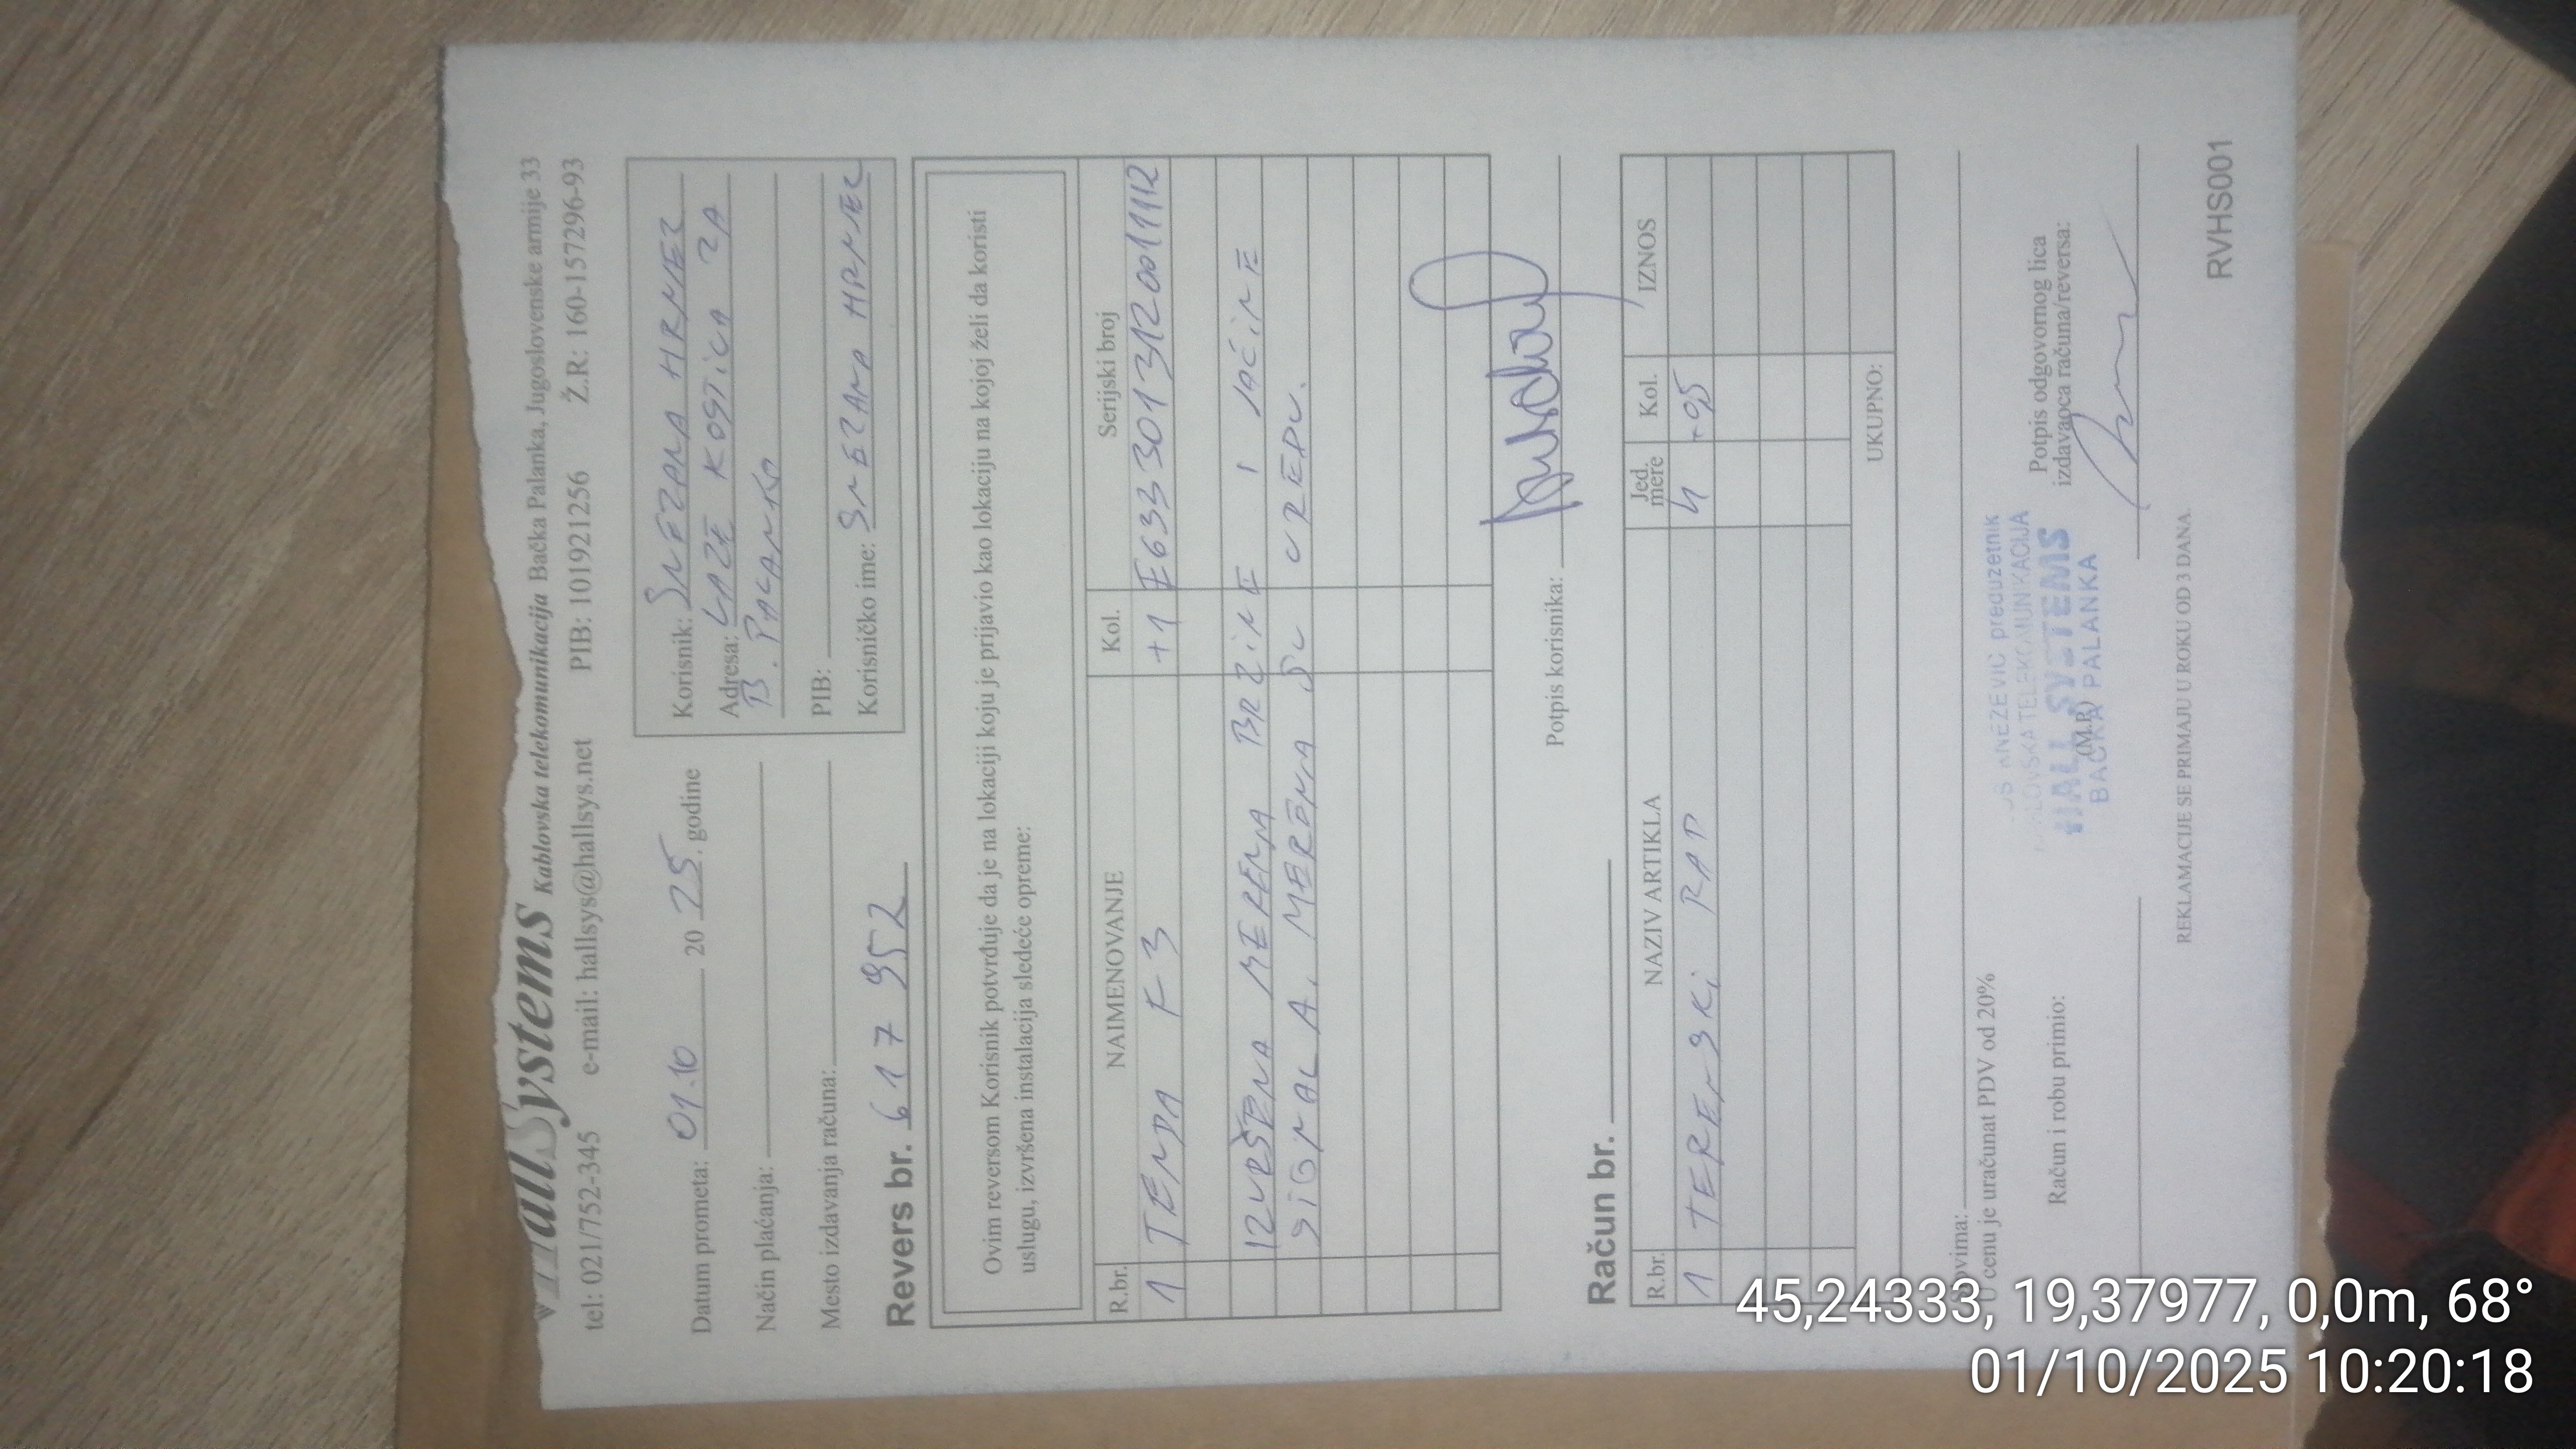 HallSystems Kablovska telekomunikacija Bačka Palanka, Jugoslovenske armije 33
tel: 021/752-345 e-mail: hallsys@hallsys.net PIB: 101921256 Ž.R: 160-157296-93
Datum prometa: 01.10 20 25. godine
Način plaćanja:
Mesto izdavanja računa:
Korisnik: SNEZANA HRNEZ
Adresa: LAZE KOSTIĆA 2A
B. PALANKA
PIB:
Korisničko ime: SNEZANA HRNJEC
Revers br. 617 952
Ovim reversom Korisnik potvrđuje da je na lokaciji koju je prijavio kao lokaciju na kojoj želi da koristi
uslugu, izvršena instalacija sledeće opreme:
R.br. NAIMENOVANJE Kol. Serijski broj
1 TENDA F3 +1 E6333013120011112
IZVRŠENA MERENA BRZINE I JAČINE
SIGNALA. MERENA SU UREDU.
Potpis korisnika:
Račun br.
R.br. NAZIV ARTIKLA Jed. mere Kol. IZNOS
1 TERENSKI RAD h +0,5
UKUPNO:
ovima:
U cenu je uračunat PDV od 20%
Račun i robu primio:
KNEZEVIC preduzetnik
KABLOVSKA TELEKOMUNIKACIJA
HALL SYSTEMS
(M.P.)
BAČKA PALANKA
Potpis odgovornog lica
izdavaoca računa/reversa:
REKLAMACIJE SE PRIMAJU U ROKU OD 3 DANA.
RVHS001
45,24333, 19,37977, 0,0m, 68°
01/10/2025 10:20:18